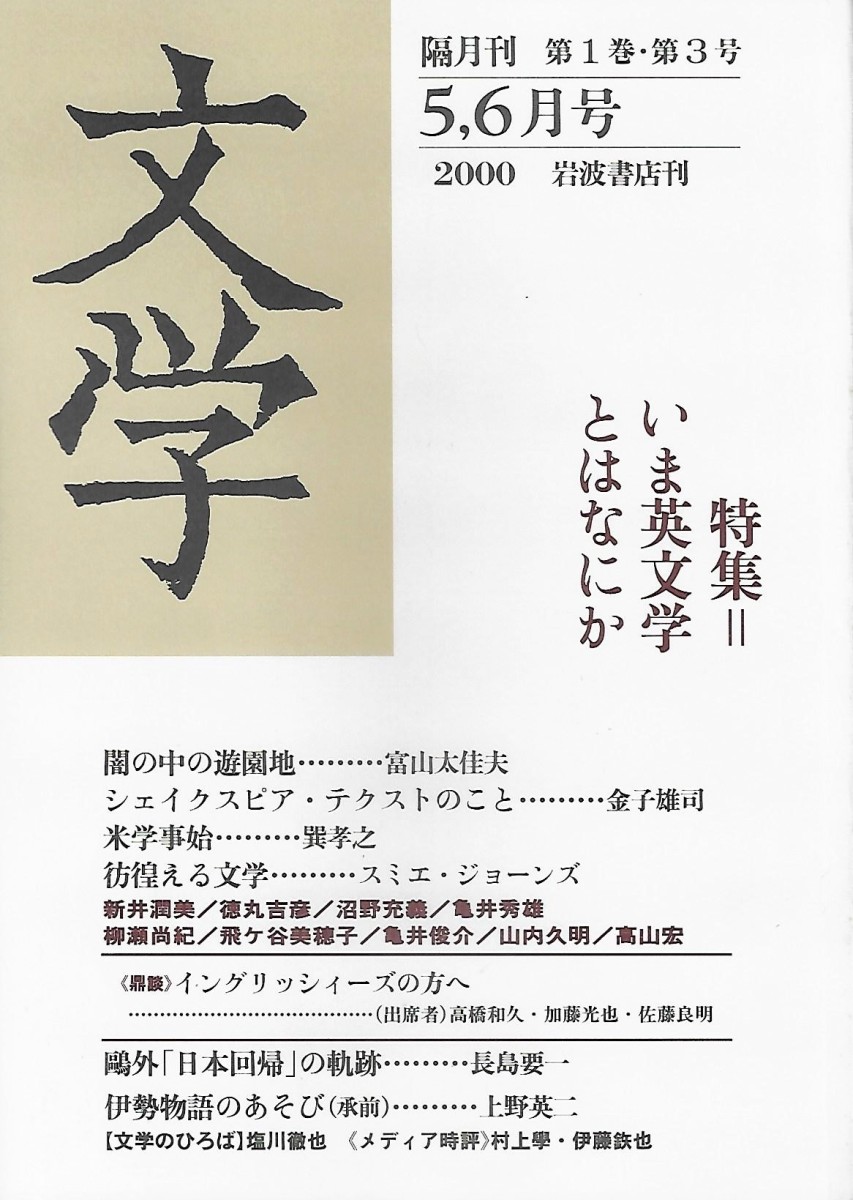 文学
隔月刊 第1巻・第3号
5,6月号
2000 岩波書店刊
特集＝
いま英文学
とはなにか
闇の中の遊園地………富山太佳夫
シェイクスピア・テクストのこと………金子雄司
米学事始………巽孝之
彷徨える文学………スミエ・ジョーンズ
新井潤美／徳丸吉彦／沼野充義／亀井秀雄
柳瀬尚紀／飛ケ谷美穂子／亀井俊介／山内久明／高山宏
《鼎談》イングリッシィーズの方へ
…………………………………(出席者)高橋和久・加藤光也・佐藤良明
鷗外「日本回帰」の軌跡………長島要一
伊勢物語のあそび(承前)………上野英二
【文学のひろば】塩川徹也 《メディア時評》村上學・伊藤鉃也